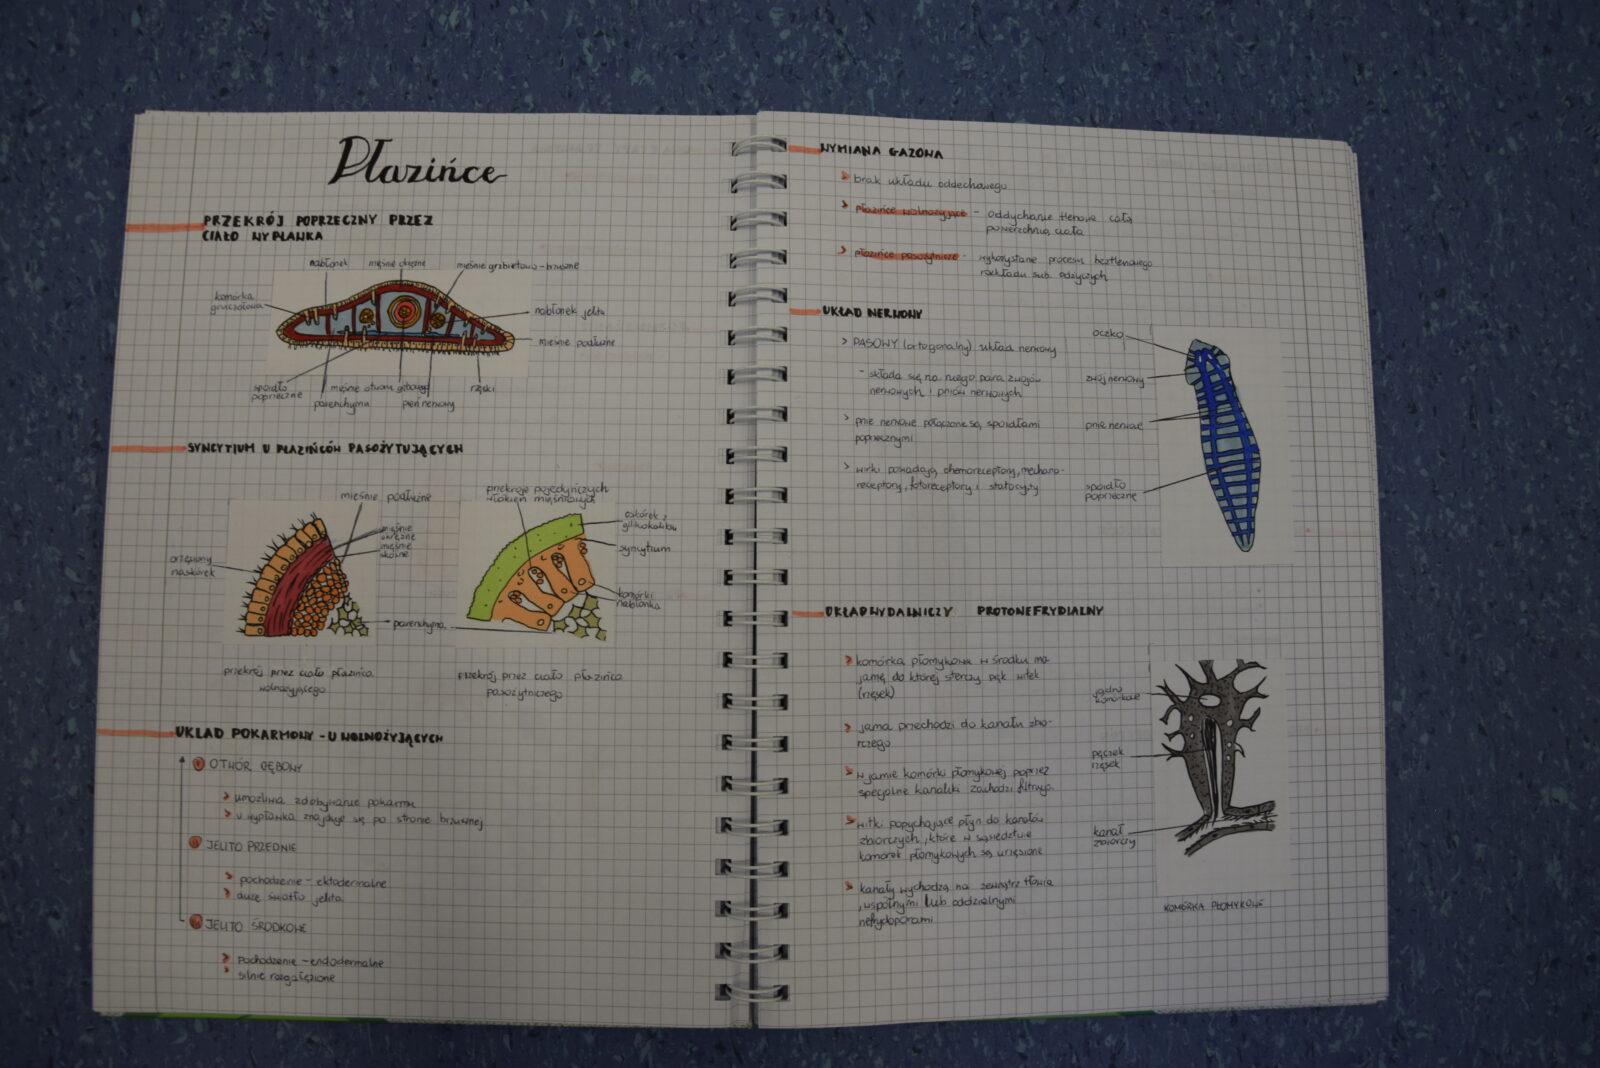 Płazińce
PRZEKRÓJ POPRZECZNY PRZEZ
CIAŁO WYPLAWKA
nabłonek
mięśnie okrężne
mięśnie grzbietowo-brzuszne
komórka
gruczołowa
nabłonek jelita
mięśnie podłużne
spoidło
poprzeczne
mięśnie otworu gębowego
parenchyma
pień nerwowy
rzęski
SYNCYTIUM U PŁAZIŃCÓW PASOŻYTUJĄCYCH
mięśnie podłużne
mięśnie
okrężne
mięśnie
skośne
orzęsiony
naskórek
przekroje pojedynczych
włókien mięśniowych
oskórek z
glikokaliksu
syncytium
komórki
nabłonka
parenchyma
przekrój przez ciało płazińca
wolnożyjącego
przekrój przez ciało płazińca
pasożytniczego
UKŁAD POKARMOWY - U WOLNOŻYJĄCYCH
OTWÓR GĘBOWY
umożliwia zdobywanie pokarmu
u wypławka znajduje się po stronie brzusznej
JELITO PRZEDNIE
pochodzenie - ektodermalne
duże światło jelita
JELITO ŚRODKOWE
pochodzenie - endodermalne
silnie rozgałęzione
WYMIANA GAZOWA
brak układu oddechowego
płazińce wolnożyjące - oddychanie tlenowe całą
powierzchnią ciała
płazińce pasożytnicze - wykorzystanie procesu beztlenowego
rozkładu sub. odżywczych
UKŁAD NERWOWY
> PASOWY (ortogonalny) układ nerwowy
- składa się na niego para zwojów
nerwowych i pniów nerwowych
> pnie nerwowe połączone są spoidłami
poprzecznymi
> wirki posiadają chemoreceptory, mechano-
receptory, fotoreceptory i statocysty
oczko
zwój nerwowy
pnie nerwowe
spoidło
poprzeczne
UKŁAD WYDALNICZY PROTONEFRYDIALNY
komórka płomykowa w środku ma
jamę do której sterczy pęk witek
(rzęsek)
jama przechodzi do kanału zbio-
rczego
w jamie komórki płomykowej poprzez
specjalne kanaliki zachodzi filtracja
witki popychające płyn do kanałów
zbiorczych, które w sąsiedztwie
komórek płomykowych są urzęsione
kanały wychodzą na zewnątrz
wspólnymi lub oddzielnymi
nefrydoporami
jądro
komórkowe
pęczek
rzęsek
kanał
zbiorczy
KOMÓRKA PŁOMYKOWE